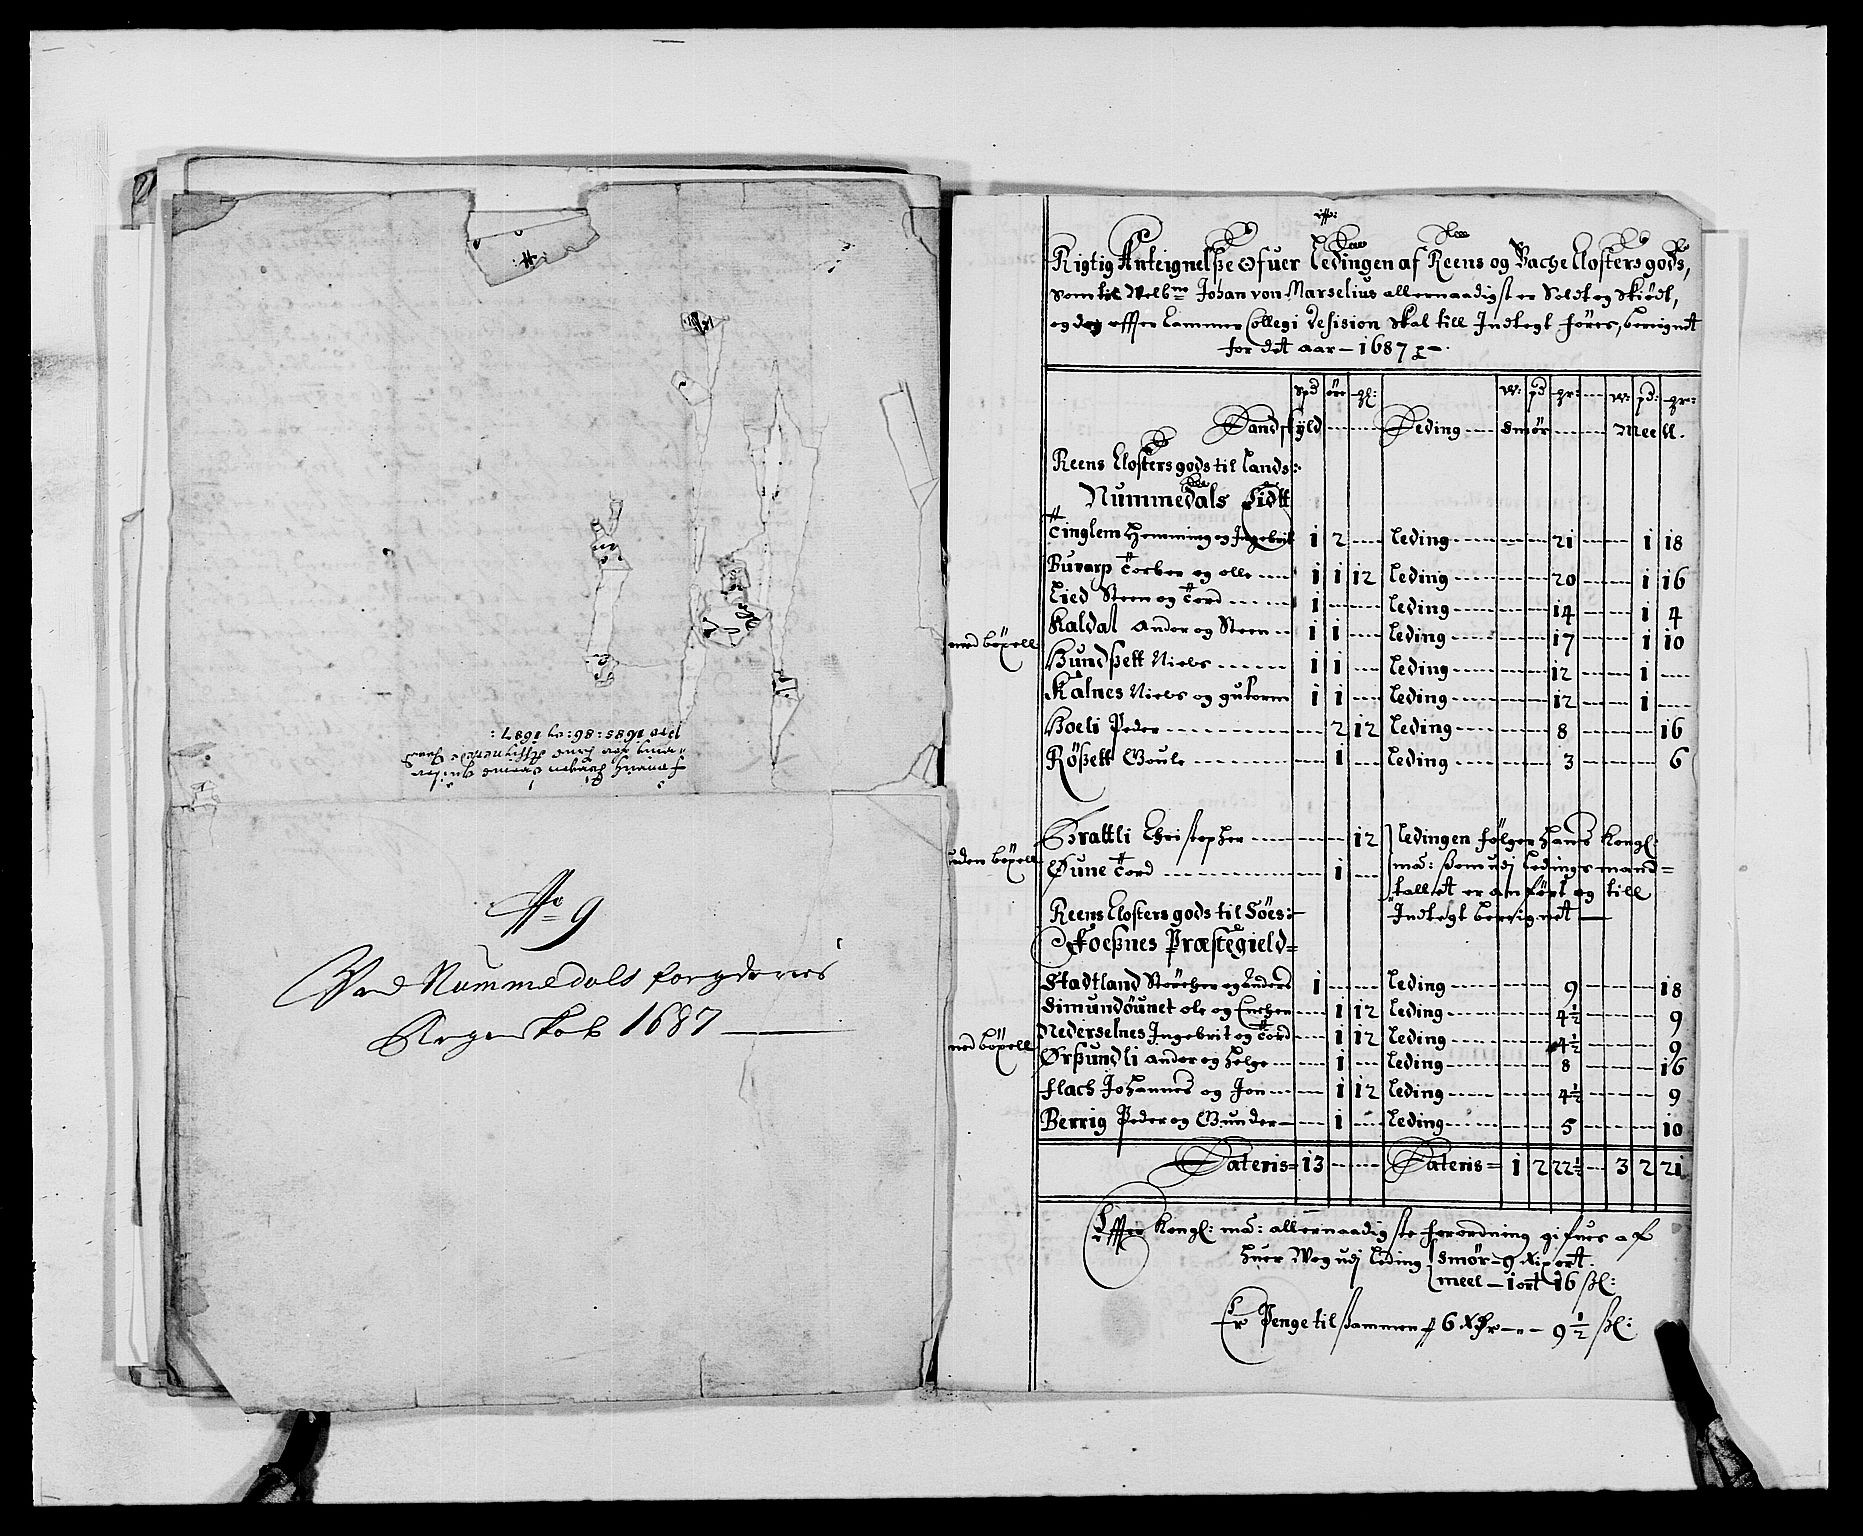 No 9
Ved Nummedals fougderies
Regenskab 1687
Pro 1685: 86: og 1687:
Rigtig Anteignelße Ofuer Ledingen af Reens og Bache Closters gods,
som til Welbne Johan von Marselius allernaadigst er Soldt og Skiödt,
og dog effter Cammer Collegi Desision skal till Indtegt föres, bereignet
for det aar - 1687
Spd öre W: pd gr: W: pd: gr:
Landskyld Leding Smör Meell.
Reens Closters gods til Lands:
Nummedals Tidtt
Tinglem Hemming og Ingebrit 1 2 Leding 21 1 18
Buvarp Torber og olle 1 1 12 Leding 20 1 16
Lied Steen og Tord 1 Leding 14 1 4
med böxell
Kaldal Ander og Steen 1 1 Leding 17 1 10
Hundßett Niels 1 1 Leding 12 1
Kalnes Niels og gutorm 1 1 Leding 12 1
Hoeli Peder 2 12 Leding 8 16
Rößett Goule 1 Leding 3 6
uden böxell
Brattli Christopher 12 Ledingen fölger Hans Kongl:
Øune Tord 1 Maj: ßom udj Ledings mand=
tallet er anfört og till
Indtegt bereignet
Reens Closters gods til Söes:
Foeßnes Præstegield=
Stadtland Störcher og Anders 1 Leding 9 18
Simundöunet ole og Enchen 1 12 Leding 4½ 9
med böxell
Nederselnes Ingebrit og Tord 1 12 Leding 4½ 9
Ørßundli Ander og Helge 1 Leding 8 16
Flach Johannes og Jon 1 12 Leding 4½ 9
Berrig Peder og Gunder 1 Leding 5 10
Lateris= 13 Lateris= 1 2 22½ 3 2 21
Effter Kongl: Maj: allernaadigste forordning gifues af
huer Wog udj Leding Smör - 9 ort.
meel - 1 ort 16 ßl:
Er Penge til sammen 6 Rdr - 9 ½ ßl: